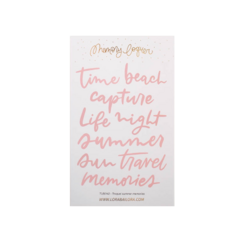 time beach
capture
life night
summer
sun travel
memories